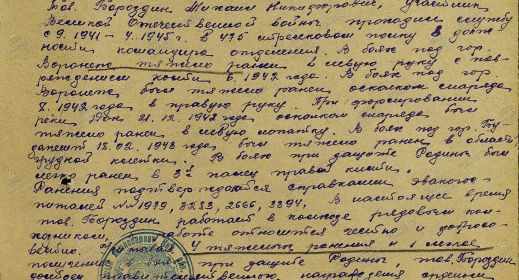 Тов. Бороздин Михаил Никифорович, участник
Великой Отечественной войны проходил службу
с 9. 1941 - 4. 1945 г. в 475 стрелковом полку в долж
ности командира отделения. В боях под гор.
Воронеже тяжело ранен в левую руку с пов-
реждением кости 6. 1942 года. В боях под гор.
Воронеже был тяжело ранен осколком снаряда
8. 1942 года в правую руку. При форсировании
реки Дон 21. 12. 1942 года осколком снаряда был
тяжело ранен в левую лопатку. В боях под гор. Бу-
дапешт 18. 02. 1945 года был тяжело ранен в область
грудной клетки. В бою при защите Родины был
легко ранен в 3й палец правой кисти.
Ранения подтверждаются справками эвакогос-
питалей №№ 1979, 3233, 2666, 3394. В настоящее время
тов. Бороздин работает в колхозе рядовым кол-
хозником, работе относится честно и добросо-
вестно. 4 тяжелых ранения и 1 легкое
при защите Родины тов. Бороздин
правительственною награждения орденом